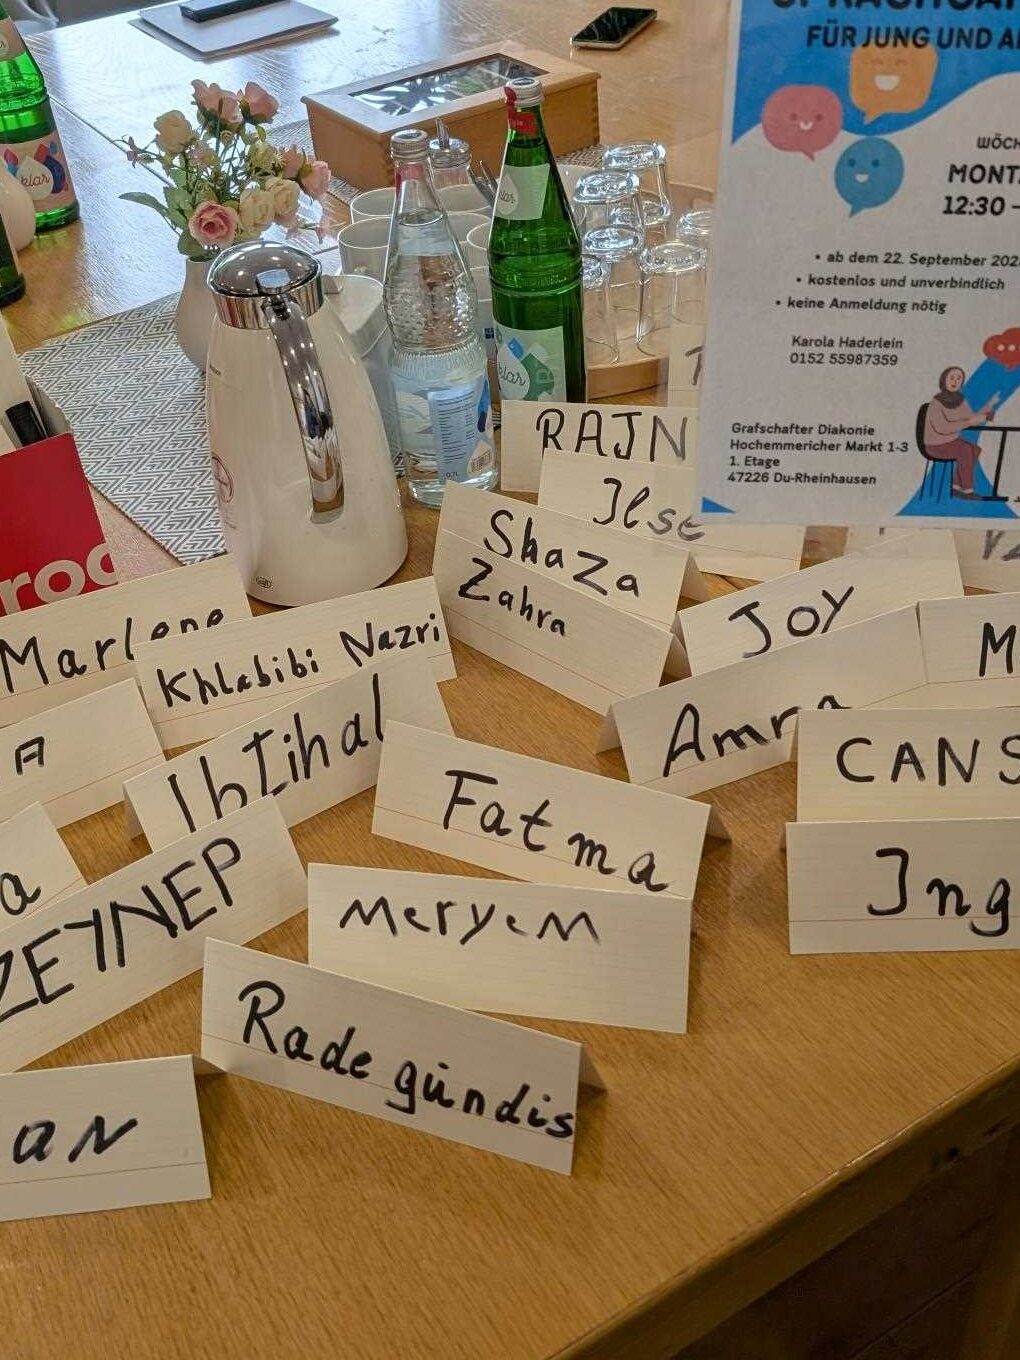 FÜR JUNG UND
MONT
12:30 –
• ab dem 22. September 202
• kostenlos und unverbindlich
• keine Anmeldung nötig
Karola Haderlein
0152 55987359
Grafschafter Diakonie
Hochemmericher Markt 1-3
1. Etage
47226 Du-Rheinhausen
klar
klar
RAJN
Ilse
Shaza
Zahra
JOY
Marlene
Khlabibi Nazri
Amra
M
A
IbTihal
CANS
Fatma
Ing
a
ZEYNEP
MeryeM
Radegündis
an